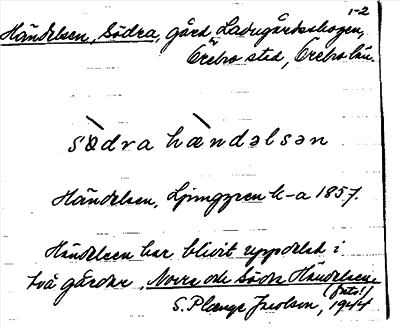 1-2
Händelsen, Södra, gård, Ladugårdsskogen,
Örebro stad, Örebro län.
sö̀dra hæ̀ndəlsən
Händelsen, Ljunggren k-a 1857.
Händelsen har blivit uppdelad i
två gårdar, Norra och Södra Händelsen.
(foto!)
S. Plænge Jacobson, 1944